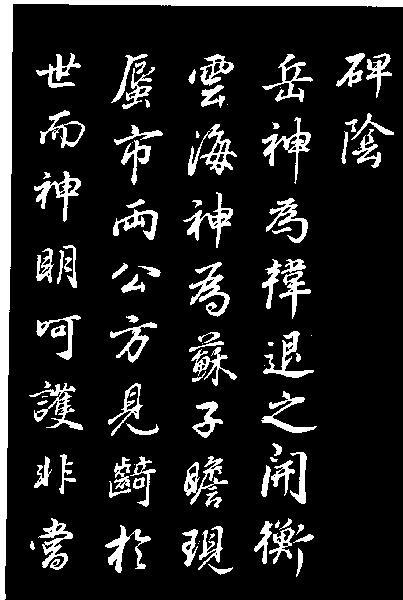 碑陰
岳神為韓退之開衡
雲海神為蘇子瞻現
蜃市两公方見齮於
世而神明呵護非當